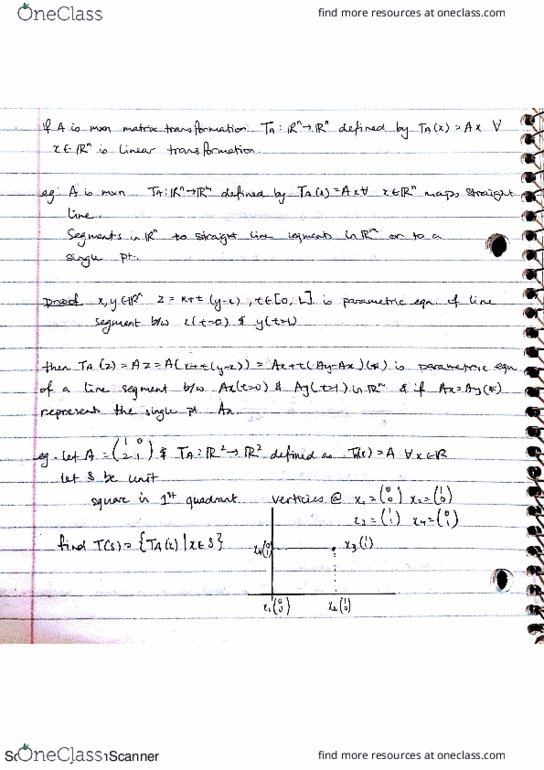 OneClass
find more resources at oneclass.com
If A is mxn matrix transformation TA: ℝⁿ→ℝⁿ defined by TA(x) = Ax ∀
x∈ℝⁿ is linear transformation.
eg: A is mxn TA: ℝⁿ→ℝᵐ defined by TA(x) = Ax ∀ x∈ℝⁿ maps straight
line.
Segments in ℝⁿ to straight line segments in ℝᵐ or to a
single pt.
proof x,y∈ℝⁿ z = x+t(y-x), t∈[0,1] is parametric eqn. of line
segment b/w x(t=0) & y(t=1)
then TA(z) = Az = A(x+t(y-x)) = Ax+t(Ay-Ax)(*) is parametric eqn
of a line segment b/w Ax(t=0) & Ay(t=1) in ℝᵐ & if Ax=Ay(*)
represents the single pt Ax.
eg. let A = (1 0 2 -1) & TA: ℝ²→ℝ² defined as T(x) = A ∀x∈ℝ
let S be unit
square in 1st quadrant. verticies @ x₁=(0 0) x₂=(1 0)
x₃=(1 1) x₄=(0 1)
find T(S) = {TA(x) | x∈S}
x₄(0 1) x₃(1 1)
x₁(0 0) x₂(1 0)
OneClass
Scanner
find more resources at oneclass.com